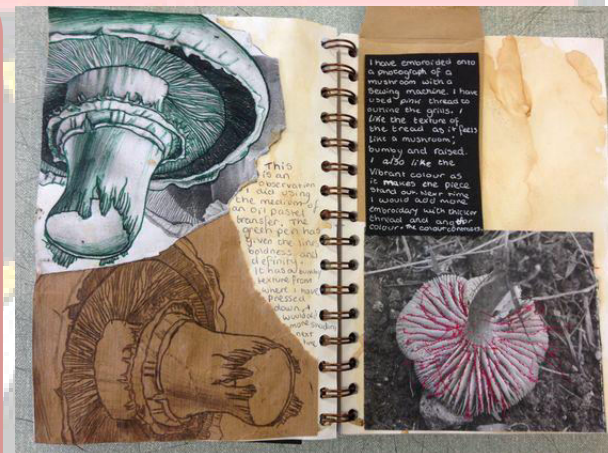 This
is an
observation
I did using
the medium of
an oil pastel
transfer. The
green pen has
given the line
boldness and
definity.
It has a bumby
texture from
where I have
pressed
down. I
would add
more shading
next
time.
I have embroided onto
a photograph of a
mushroom with a
sewing machine. I have
used pink thread to
outline the grills. I
like the texture of
the tread as it feels
like a mushroom;
bumby and raised.
I also like the
vibrant colour as
it makes the piece
stand out. Next time
I would add more
embroidary with thicker
thread and another
colour - the colour